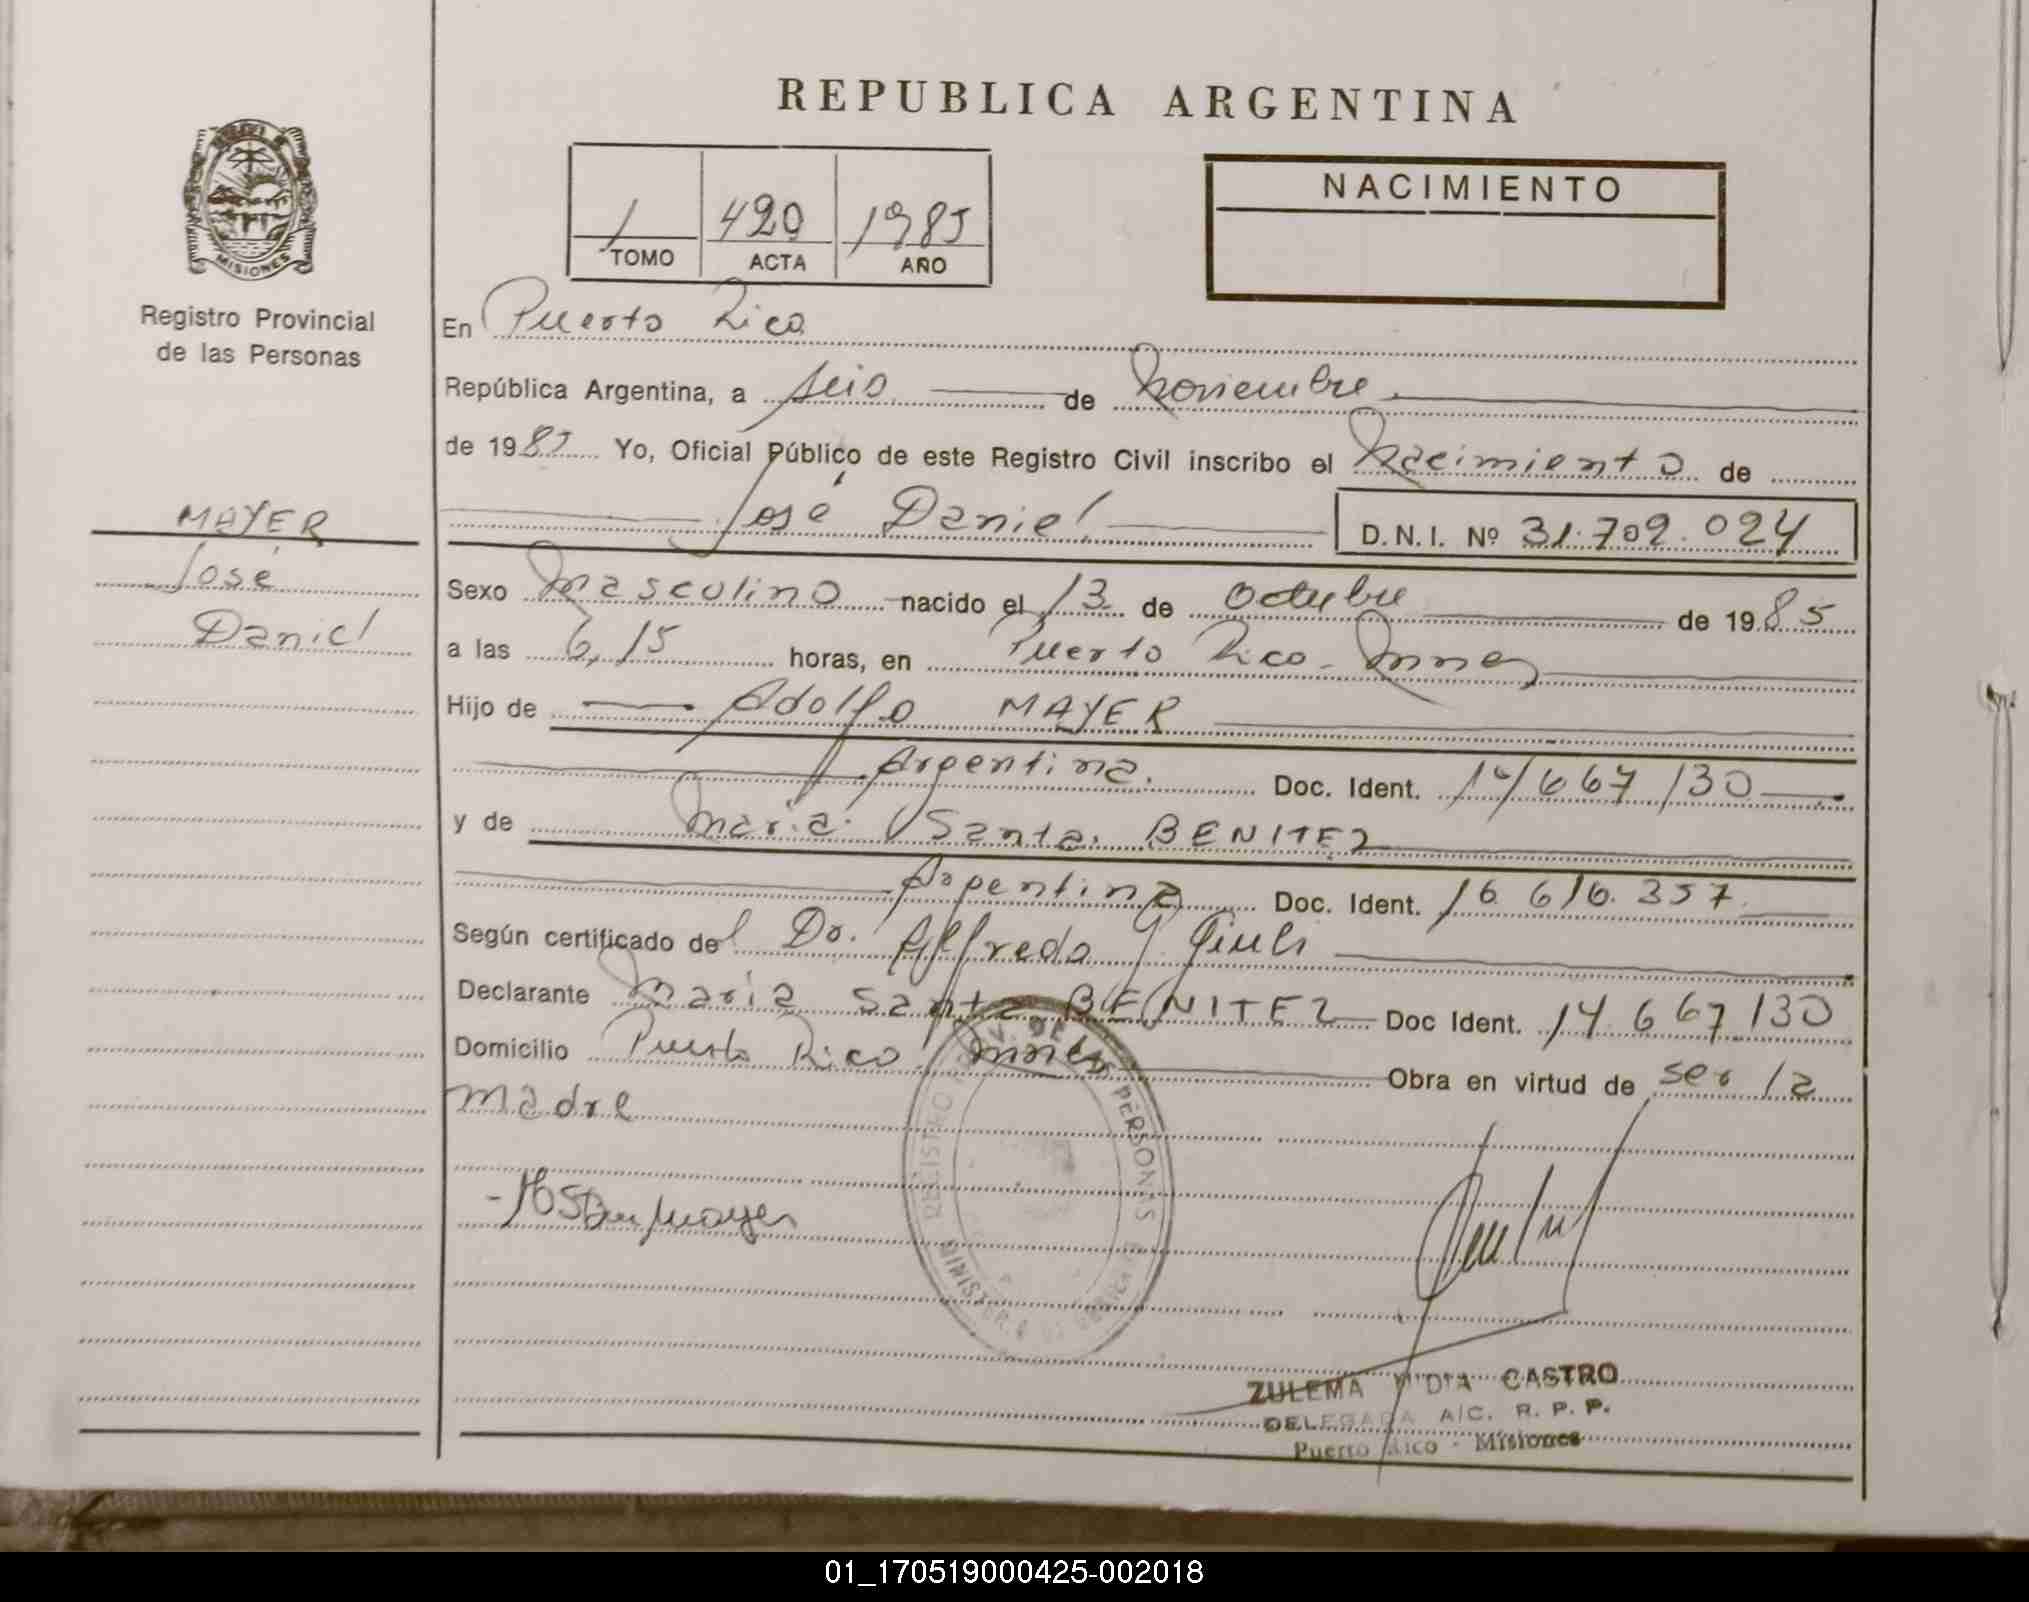 REPUBLICA ARGENTINA
MISIONES
Registro Provincial
de las Personas
1 420 1985
TOMO ACTA AÑO
NACIMIENTO
En Puerto Rico
República Argentina, a seis de Noviembre
de 1985 Yo, Oficial Público de este Registro Civil inscribo el Nacimiento de
José Daniel D.N.I. Nº 31.702.024
MAYER
José
Daniel
Sexo Masculino nacido el 13 de octubre de 1985
a las 6,15 horas, en Puerto Rico- Mnes
Hijo de Adolfo MAYER
Argentina. Doc. Ident. 14/667/130
y de Maria Santa BENITEZ
Argentina Doc. Ident. 16.616.357
Según certificado del Dr. Alfredo J. Giuli
Declarante Maria Santa BENITEZ Doc Ident. 14.667.130
Domicilio Puerto Rico Mnes Obra en virtud de ser la
madre
REGISTRO PROV. DE LAS PERSONAS
ZULEMA CASTRO
DELEGADA A/C. R. P. P.
Puerto Rico - Misiones
01_170519000425-002018